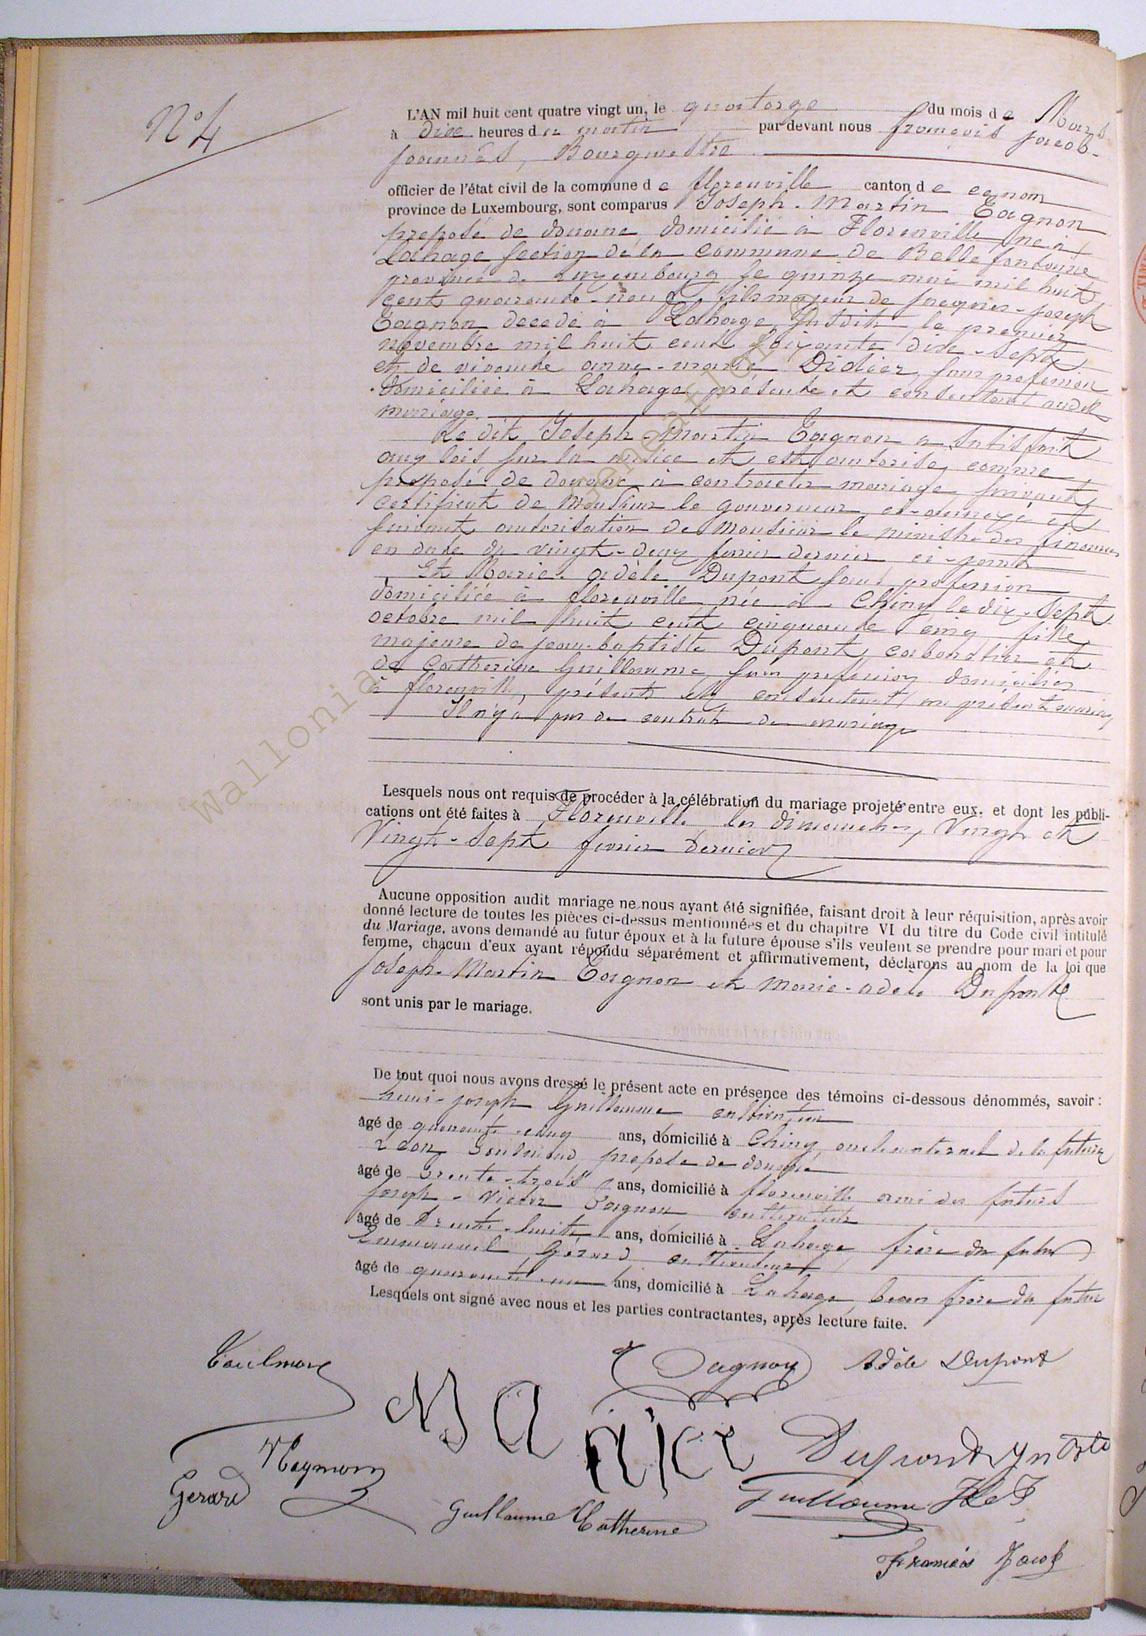 N° 4
L'AN mil huit cent quatre vingt un, le quatorze du mois de Mars
à dix heures du matin par devant nous françois Jacob-
Joannès, Bourgmestre
officier de l'état civil de la commune de florenville canton de
province de Luxembourg, sont comparus Joseph-Martin Tagnon
préposé de douane, domicilié à Florenville né à
Lahage section de la commune de Bellefontaine
province de Luxembourg le quinze mai mil huit
cent quarante-neuf, fils majeur de jacques-joseph
Tagnon décédé à Lahage susdit le premier
novembre mil huit cent soixante dix-sept
et de vivante anne-marie Didier, sans profession
domiciliée à Lahage, présente et consentant audit
mariage.
Le dit Joseph-Martin Tagnon a satisfait
aux lois sur la milice et est autorisé, comme
préposé de douane à contracter mariage suivant
certificat de Monsieur le gouverneur, ci-annexé et
suivant autorisation de Monsieur le ministre des finances
en date du vingt-deux février dernier ci-joint
Et Marie-adèle Dupont sans profession
domiciliée à florenville née à Chiny le dix-sept
octobre mil huit cent cinquante cinq, fille
majeure de jean-baptiste Dupont, et
de Catherine Guillaume, sans profession domiciliés
à florenville, présents et consentant au présent mariage
Il n'y a pas de contrat de mariage
Lesquels nous ont requis de procéder à la célébration du mariage projeté entre eux, et dont les publi-
cations ont été faites à Florenville les dimanches, Vingt et
Vingt-sept février dernier
Aucune opposition audit mariage ne nous ayant été signifiée, faisant droit à leur réquisition, après avoir
donné lecture de toutes les pièces ci-dessus mentionnées et du chapitre VI du titre du Code civil intitulé
du Mariage, avons demandé au futur époux et à la future épouse s'ils veulent se prendre pour mari et pour
femme, chacun d'eux ayant répondu séparément et affirmativement, déclarons au nom de la loi que
Joseph-Martin Tagnon et Marie-adèle Dupont
sont unis par le mariage.
De tout quoi nous avons dressé le présent acte en présence des témoins ci-dessous dénommés, savoir :
henri-joseph Guillaume cultivateur
âgé de quarante-cinq ans, domicilié à Chiny, oncle maternel de la future
Léon préposé de douane
âgé de trente-trois ans, domicilié à florenville ami des futurs
joseph-Victor Tagnon cultivateur
âgé de trente-huit ans, domicilié à Lahage, frère du futur
Emmanuel Gérard cultivateur
âgé de quarante ans, domicilié à Lahage beau frère du futur
Lesquels ont signé avec nous et les parties contractantes, après lecture faite.
Tagnon Adèle Dupont
Marie
Dupont Jn Bte
Gerard
Guillaume Catherine
Guillaume H J
Francois Jacob
wallonia